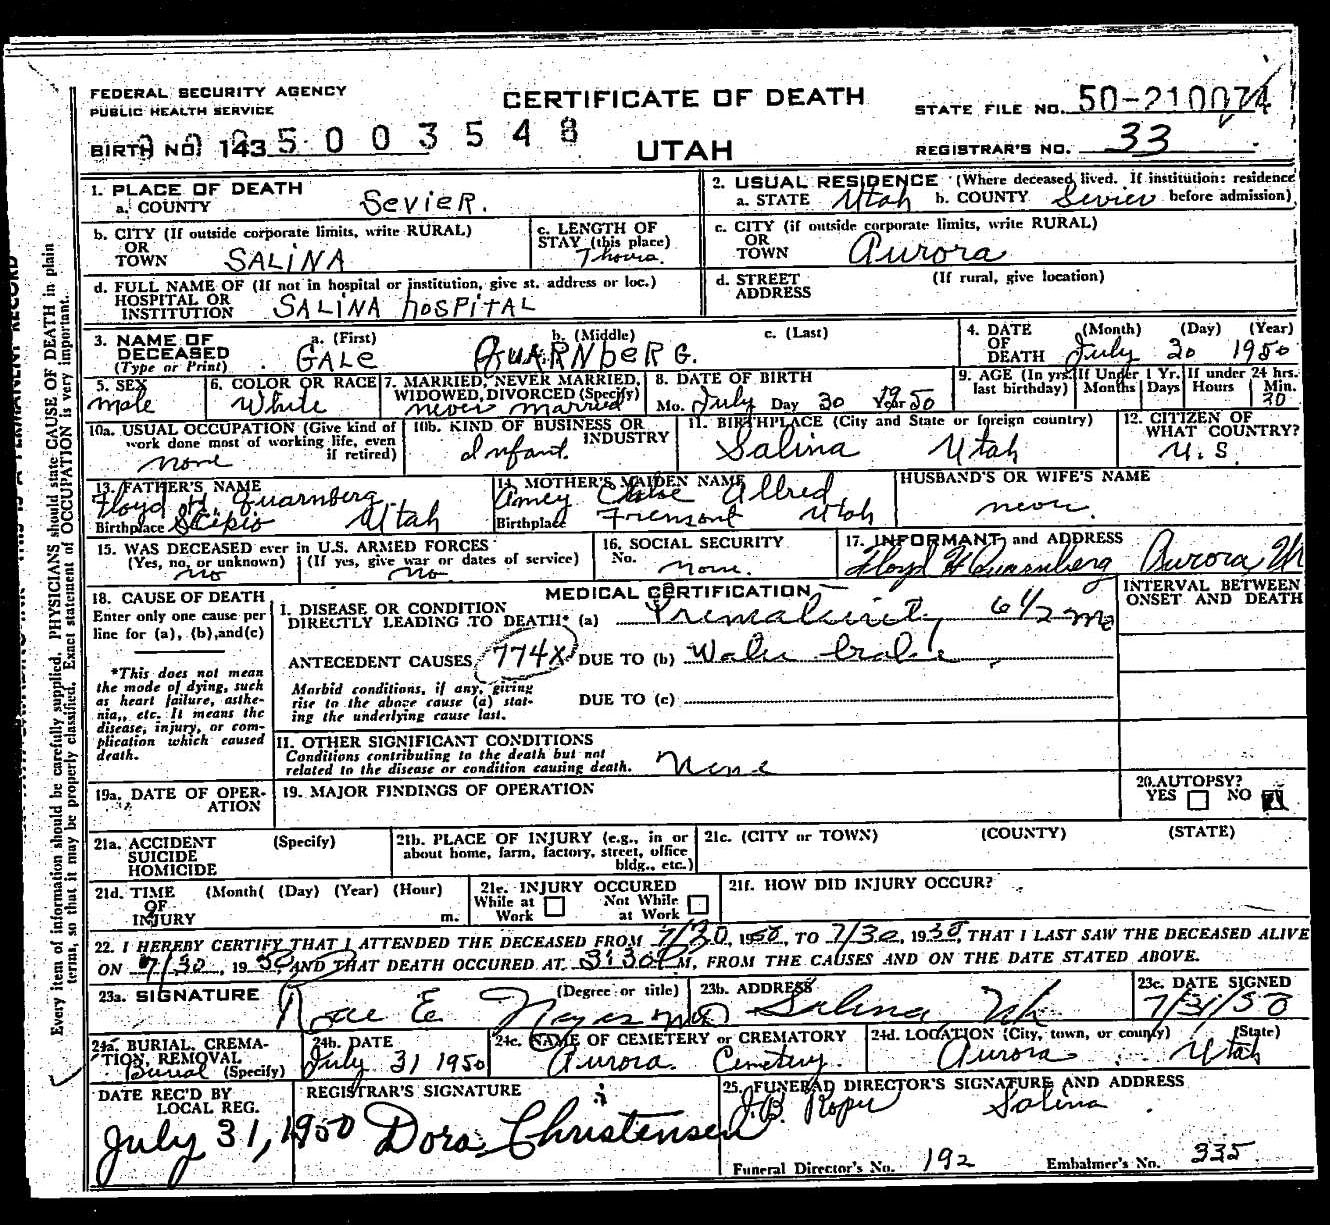 FEDERAL SECURITY AGENCY
PUBLIC HEALTH SERVICE
CERTIFICATE OF DEATH
STATE FILE NO. 50-210074
BIRTH NO. 143 5003548
UTAH
REGISTRAR'S NO. 33
1. PLACE OF DEATH
a. COUNTY Sevier.
2. USUAL RESIDENCE (Where deceased lived. If institution: residence before admission)
a. STATE Utah b. COUNTY Sevier
b. CITY (If outside corporate limits, write RURAL)
OR
TOWN SALINA
c. LENGTH OF
STAY (this place)
c. CITY (if outside corporate limits, write RURAL)
OR
TOWN Aurora
d. FULL NAME OF (If not in hospital or institution, give st. address or loc.)
HOSPITAL OR
INSTITUTION SALINA hOSPITAL
d. STREET (If rural, give location)
ADDRESS
3. NAME OF
DECEASED
(Type or Print)
a. (First) b. (Middle) c. (Last)
GALe QUARNbERG.
4. DATE
OF
DEATH
(Month) (Day) (Year)
July 30 1950
5. SEX
male
6. COLOR OR RACE
White
7. MARRIED, NEVER MARRIED,
WIDOWED, DIVORCED (Specify)
never married
8. DATE OF BIRTH
Mo. July Day 30 Year 1950
9. AGE (In yrs. last birthday) If Under 1 Yr. Months Days If under 24 hrs. Hours Min.
10a. USUAL OCCUPATION (Give kind of
work done most of working life, even
if retired)
none
10b. KIND OF BUSINESS OR
INDUSTRY
Infant.
11. BIRTHPLACE (City and State or foreign country)
Salina Utah
12. CITIZEN OF
WHAT COUNTRY?
U.S.
13. FATHER'S NAME
Floyd H. Quarnberg
Birthplace Scipio Utah
14. MOTHER'S MAIDEN NAME
Allred
Birthplace Fremont Utah
HUSBAND'S OR WIFE'S NAME
15. WAS DECEASED ever in U.S. ARMED FORCES
(Yes, no, or unknown) (If yes, give war or dates of service)
no no
16. SOCIAL SECURITY
No. none.
17. INFORMANT and ADDRESS
Floyd H Quarnberg Aurora Ut
MEDICAL CERTIFICATION
INTERVAL BETWEEN
ONSET AND DEATH
18. CAUSE OF DEATH
Enter only one cause per
line for (a), (b), and (c)
*This does not mean
the mode of dying, such
as heart failure, asthe-
nia,, etc. It means the
disease, injury, or com-
plication which caused
death.
I. DISEASE OR CONDITION
DIRECTLY LEADING TO DEATH* (a) Prematurity 6 1/2 mo
ANTECEDENT CAUSES 774X DUE TO (b)
Morbid conditions, if any, giving
rise to the above cause (a) stat-
ing the underlying cause last.
DUE TO (c)
II. OTHER SIGNIFICANT CONDITIONS
Conditions contributing to the death but not
related to the disease or condition causing death.
None
19a. DATE OF OPER-
ATION
19. MAJOR FINDINGS OF OPERATION
20. AUTOPSY?
YES NO
21a. ACCIDENT (Specify)
SUICIDE
HOMICIDE
21b. PLACE OF INJURY (e.g., in or
about home, farm, factory, street, office
bldg., etc.)
21c. (CITY or TOWN) (COUNTY) (STATE)
21d. TIME (Month( (Day) (Year) (Hour)
OF
INJURY m.
21e. INJURY OCCURED
While at Work Not While at Work
21f. HOW DID INJURY OCCUR?
22. I HEREBY CERTIFY THAT I ATTENDED THE DECEASED FROM 7/30, 1950, TO 7/30, 1950, THAT I LAST SAW THE DECEASED ALIVE
ON 7/30, 1950, AND THAT DEATH OCCURED AT 3:30 M, FROM THE CAUSES AND ON THE DATE STATED ABOVE.
23a. SIGNATURE (Degree or title)
Rae E. Noyes MD
23b. ADDRESS
Salina, Ut
23c. DATE SIGNED
7/31/50
24a. BURIAL, CREMA-
TION, REMOVAL
Burial (Specify)
24b. DATE
July 31 1950
24c. NAME OF CEMETERY or CREMATORY
Aurora Cemetery.
24d. LOCATION (City, town, or county) (State)
Aurora Utah
DATE REC'D BY
LOCAL REG.
July 31, 1950
REGISTRAR'S SIGNATURE
Dora Christensen
25. FUNERAL DIRECTOR'S SIGNATURE AND ADDRESS
J.B. Roper Salina
Funeral Director's No. 192 Embalmer's No. 335
Every item of information should be carefully supplied. PHYSICIANS should state CAUSE OF DEATH in plain
terms, so that it may be properly classified. Exact statement of OCCUPATION is very important.